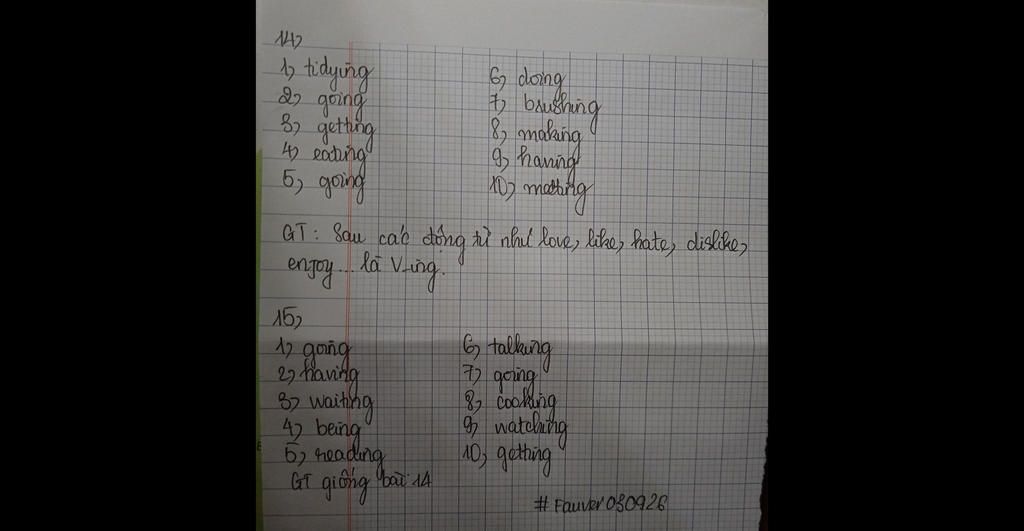 14,
1, tidying
2, going
3, getting
4, eating
5, going
6, doing
7, brushing
8, making
9, having
10,
GT: Sau các động từ như love, like, hate, dislike,
enjoy... là V-ing.
15,
1, going
2, having
3, waiting
4, being
5, reading
GT giống bài 14
6, talking
7, going
8, cooking
9, watching
10, getting
#Fauver030926